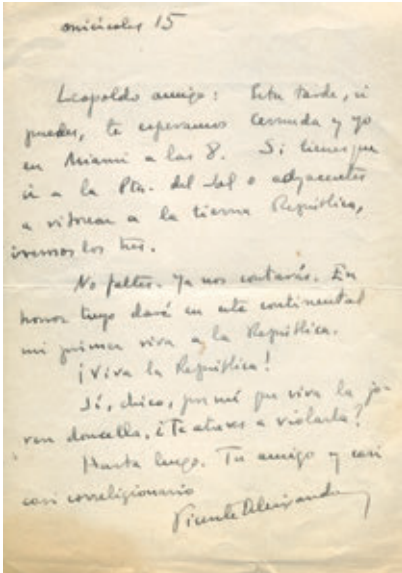 miércoles 15
Leopoldo amigo: Esta tarde, si
puedes, te esperamos Cernuda y yo
en Miami a las 8. Si tienes que
ir a la Pta. del Sol o adyacentes
a vitorear a la tierna República,
iremos los tres.
No faltes. Ya nos contarás. En
honor tuyo daré en este continental
mi primer viva a la República.
¡Viva la República!
Sí, chico, por mí que viva la jo-
ven doncella, ¿Te atreves a violarla?
Hasta luego. Tu amigo y casi
casi correligionario
Vicente Aleixandre